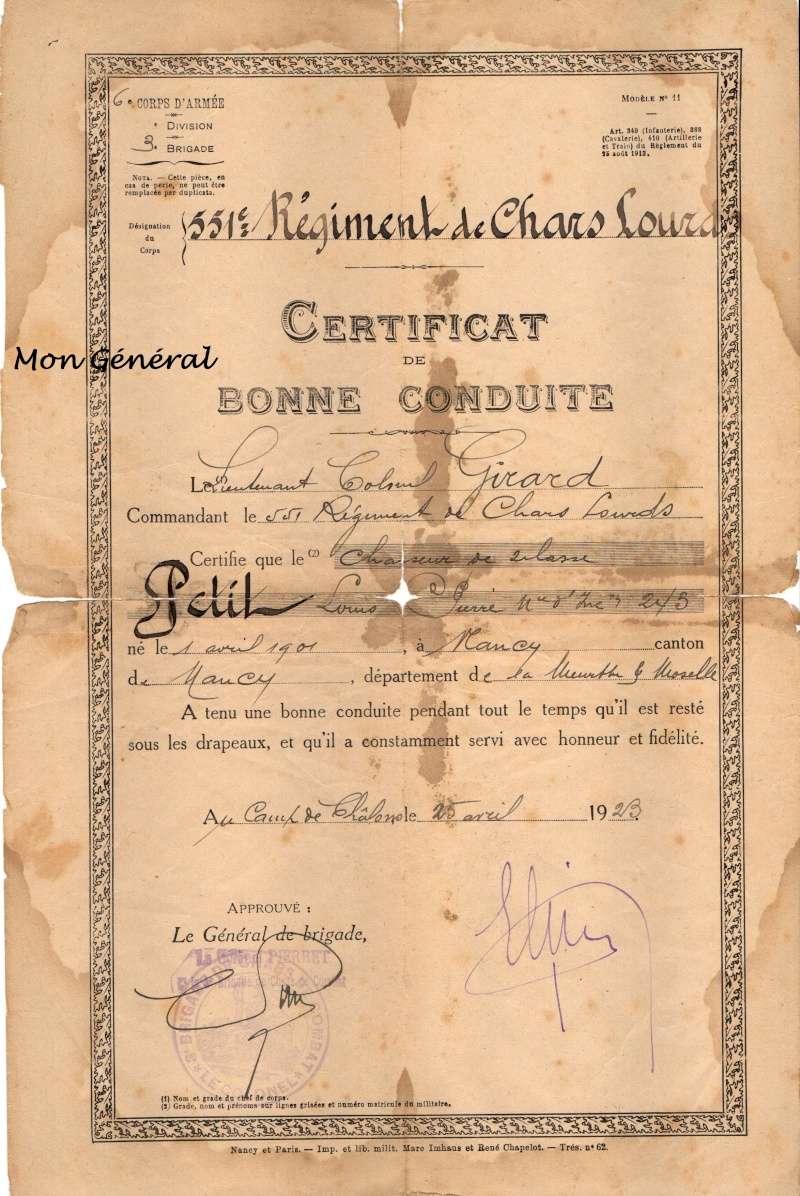 6e CORPS D'ARMÉE
e DIVISION
3e BRIGADE
NOTA. — Cette pièce, en
cas de perte, ne peut être
remplacée par duplicata.
MODÈLE N° 11
Art. 349 (Infanterie), 388
(Cavalerie), 410 (Artillerie
et Train) du Règlement du
25 août 1913.
Désignation
du
Corps
551e Régiment de Chars Lourds
CERTIFICAT
DE
Mon Général
BONNE CONDUITE
Le Lieutenant Colonel Girard
Commandant le 551 Régiment de Chars Lourds
Certifie que le (2) chasseur de 2 classe
Petit Louis Pierre
né le 1 avril 1901, à Nancy canton
de Nancy, département de la Meurthe & Moselle
A tenu une bonne conduite pendant tout le temps qu'il est resté
sous les drapeaux, et qu'il a constamment servi avec honneur et fidélité.
Au Camp de Châlons le 25 avril 1923
APPROUVÉ :
Le Général de brigade,
Le Colonel PIERRET
BRIGADE
COMBAT
LE COLONEL
(1) Nom et grade du chef de corps.
(2) Grade, nom et prénoms sur lignes grisées et numéro matricule du militaire.
Nancy et Paris. — Imp. et lib. milit. Marc Imhaus et René Chapelot. — Trés. n° 62.